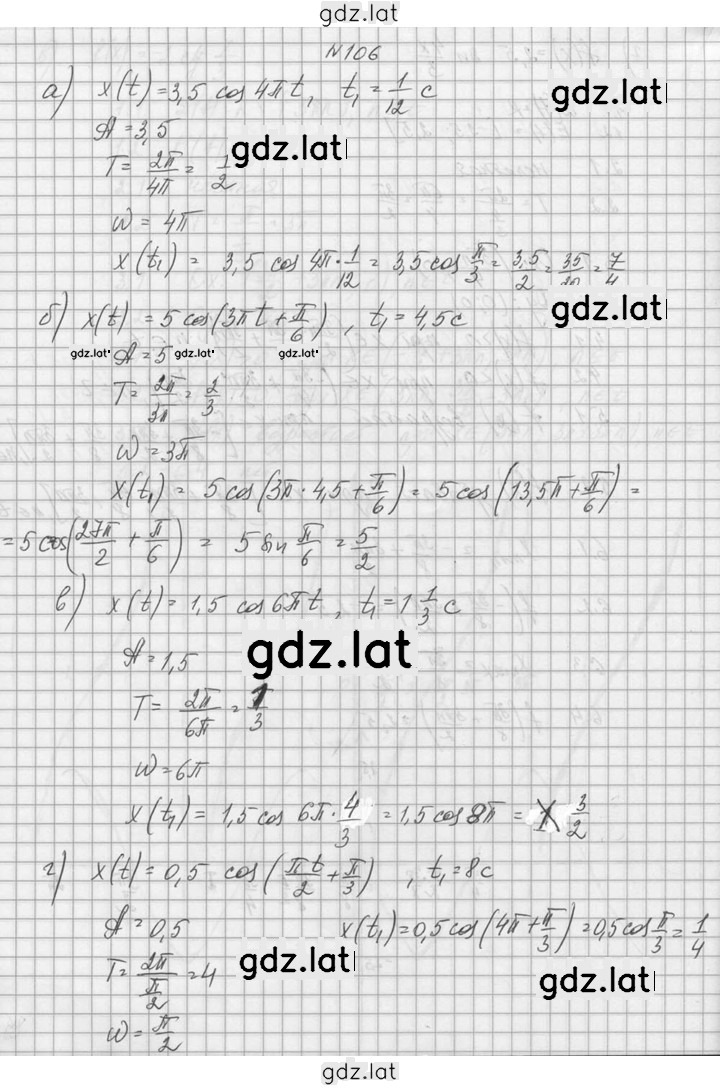 gdz.lat
N106
а) x(t) = 3,5 cos 4πt, t₁ = 1/12 c
gdz.lat
A = 3,5
gdz.lat
T = 2π/4π = 1/2
ω = 4π
x(t₁) = 3,5 cos 4π · 1/12 = 3,5 cos π/3 = 3,5/2 = 35/20 = 7/4
б) x(t) = 5 cos(3πt + π/6), t₁ = 4,5 c
gdz.lat
gdz.lat A = 5 gdz.lat gdz.lat gdz.lat
T = 2π/3π = 2/3
ω = 3π
x(t₁) = 5 cos(3π · 4,5 + π/6) = 5 cos(13,5π + π/6) =
= 5 cos(27π/2 + π/6) = 5 sin π/6 = 5/2
в) x(t) = 1,5 cos 6πt, t₁ = 1 1/3 c
A = 1,5 gdz.lat
T = 2π/6π = 1/3
ω = 6π
x(t₁) = 1,5 cos 6π · 4/3 = 1,5 cos 8π = 3/2
г) x(t) = 0,5 cos(πt/2 + π/3), t₁ = 8 c
A = 0,5 x(t₁) = 0,5 cos(4π + π/3) = 0,5 cos π/3 = 1/4
T = 2π/(π/2) = 4
gdz.lat gdz.lat
ω = π/2
gdz.lat